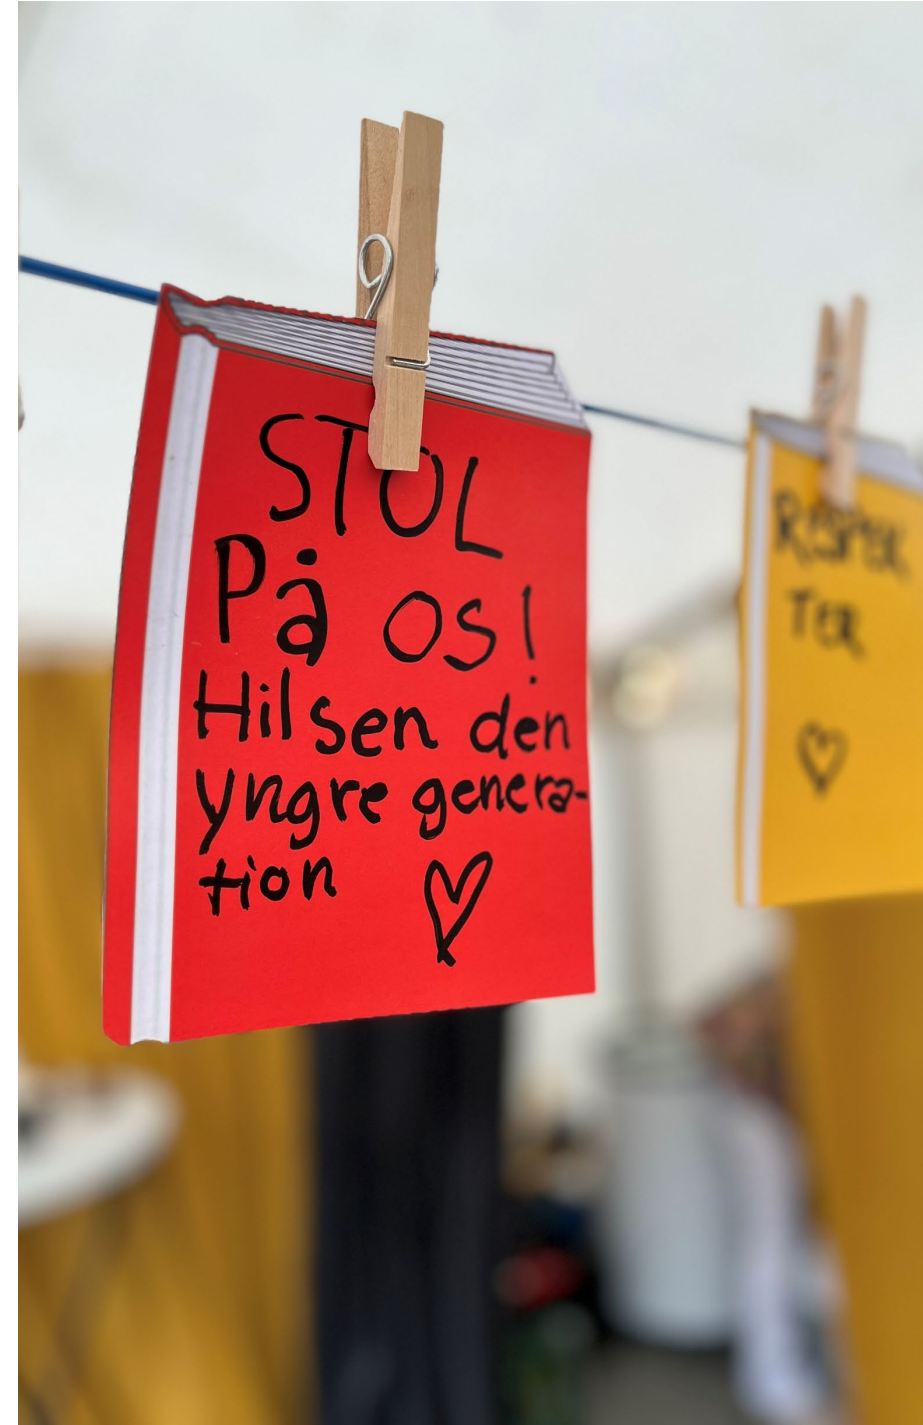 STOL
På os!
Hilsen den
yngre genera-
tion
RESPEK
TER